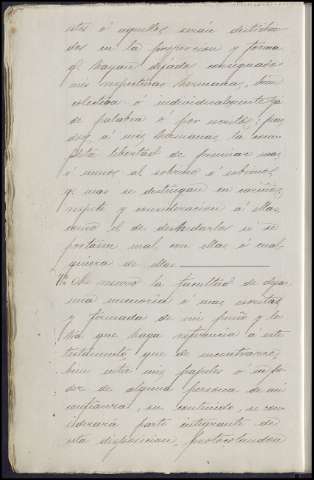 estos ó aquellos serán distribui-
dos en la proporcion y forma
q.e hayan dejado consignado
mis respectivas hermanas, bien
colectiva ó individualmente, ya
de palabra ó por escrito; pues
doy á mis hermanas la com-
pleta libertad de premiar mas
ó menos al sobrino ó sobrinos
q.e mas se distingan en cariño,
respeto y consideracion á ellas,
como el de desheredarlos si se
portasen mal con ellas ó cual-
quiera de ellas
Me reservo la facultad de dejar
una memoria ó mas escritas
y firmadas de mi puño y le-
tra que haga referencia á este
testamento, que de encontrarse,
bien entre mis papeles ó en po-
der de alguna persona de mi
confianza, su contenido, se con-
siderará parte integrante de
esta disposicion, protocolandose